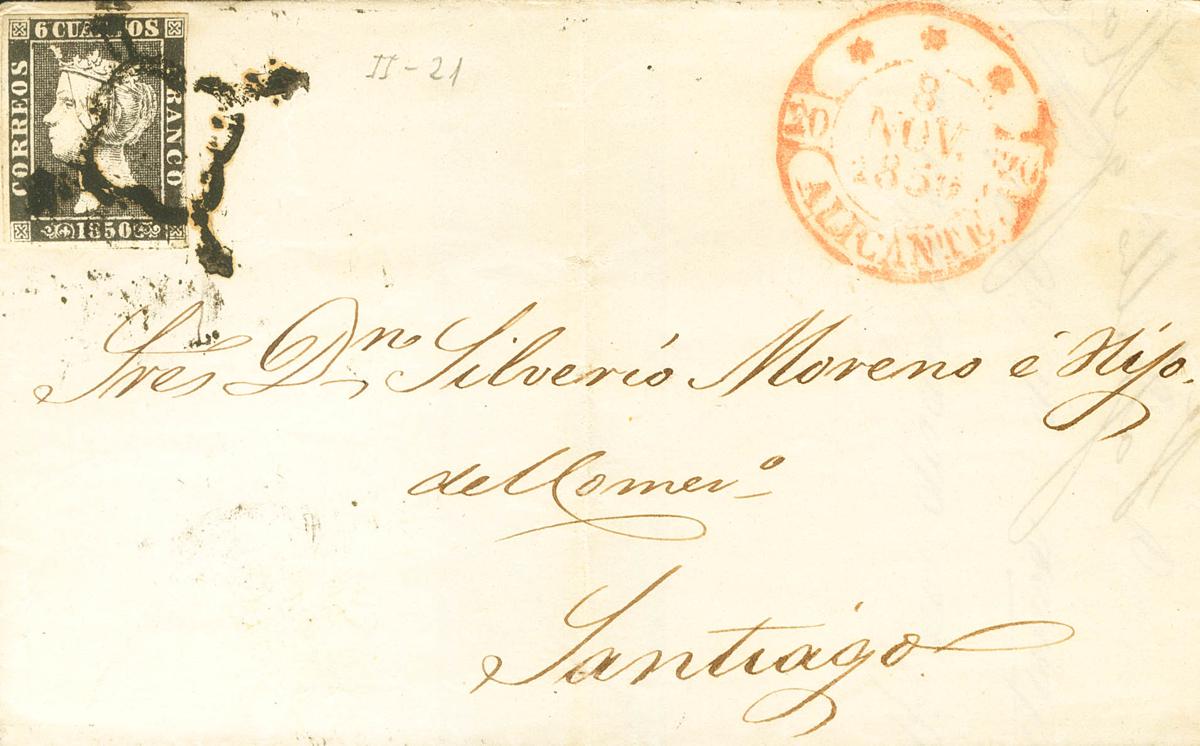 6 CUARTOS
CORREOS
FRANCO
1850
II-21
8
NOV.
1850
20
20
ALICANTE
Sres Dn Silverio Moreno é Hijo.
del Comerº
Santiágo